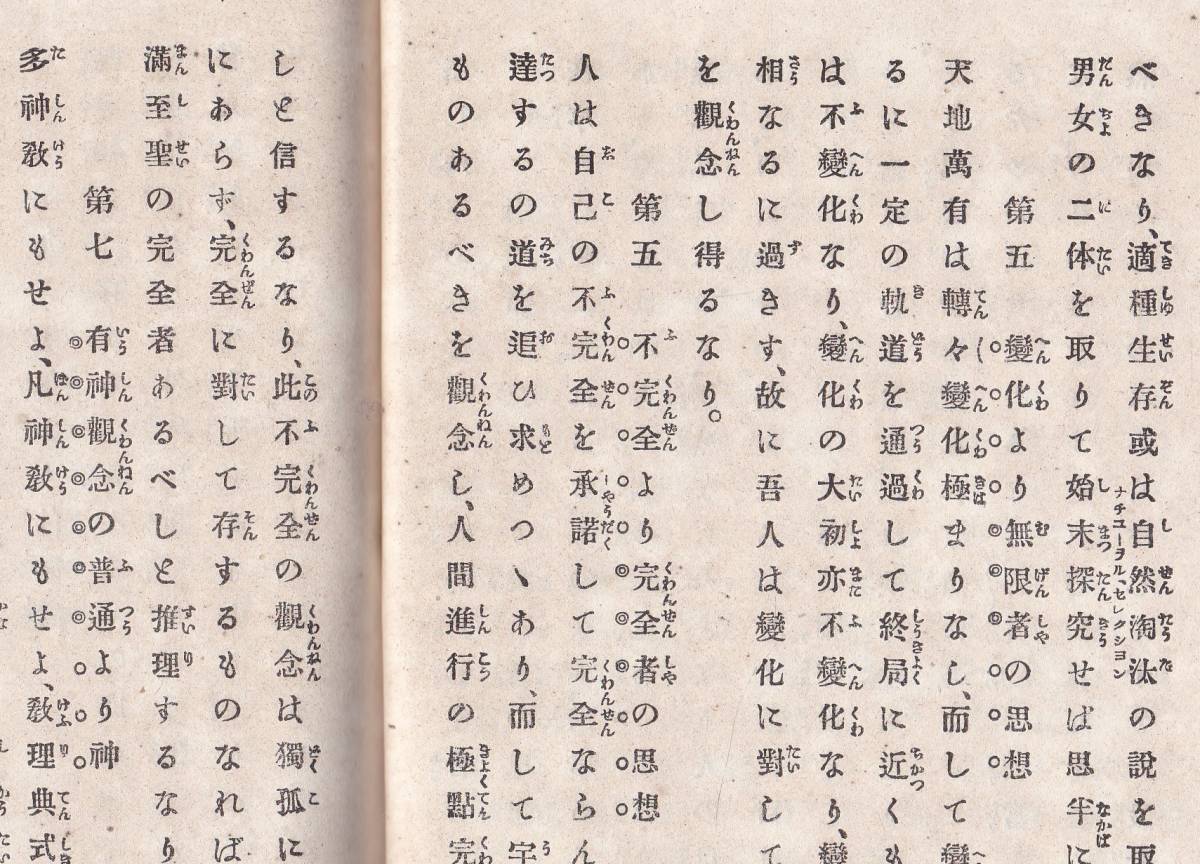 べきなり、適種生存或は自然淘汰の説を取
男女の二体を取りて始末探究せば思半に
第五 變化より無限者の思想
天地萬有は轉々變化極まりなし、而して
るに一定の軌道を通過して終局に近くも
は不變化なり、變化の大初亦不變化なり、變
相なるに過きす、故に吾人は變化に對して
を觀念し得るなり。
第五 不完全より完全者の思想
人は自己の不完全を承諾して完全ならん
達するの道を追ひ求めつヽあり、而して宇
ものあるべきを觀念し、人間進行の極點完
しと信するなり、此不完全の觀念は獨孤に
にあらず、完全に對して存するものなれば
滿至聖の完全者あるべしと推理するなり
第七 有神觀念の普通より神
多神敎にもせよ、凡神敎にもせよ、敎理典式